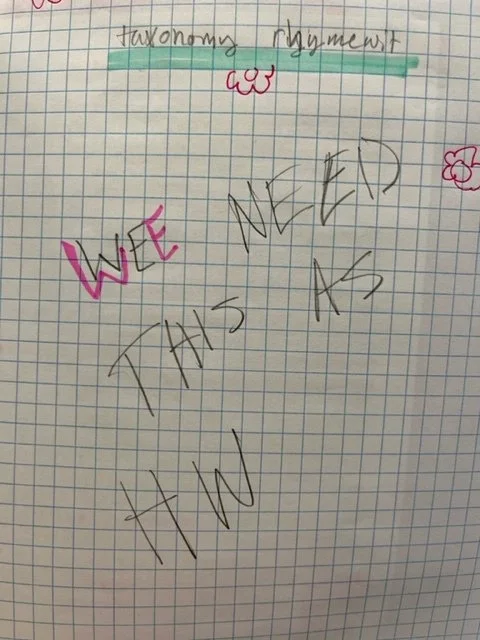 taxonomy rhymewit
WEE NEED
THIS AS
HW